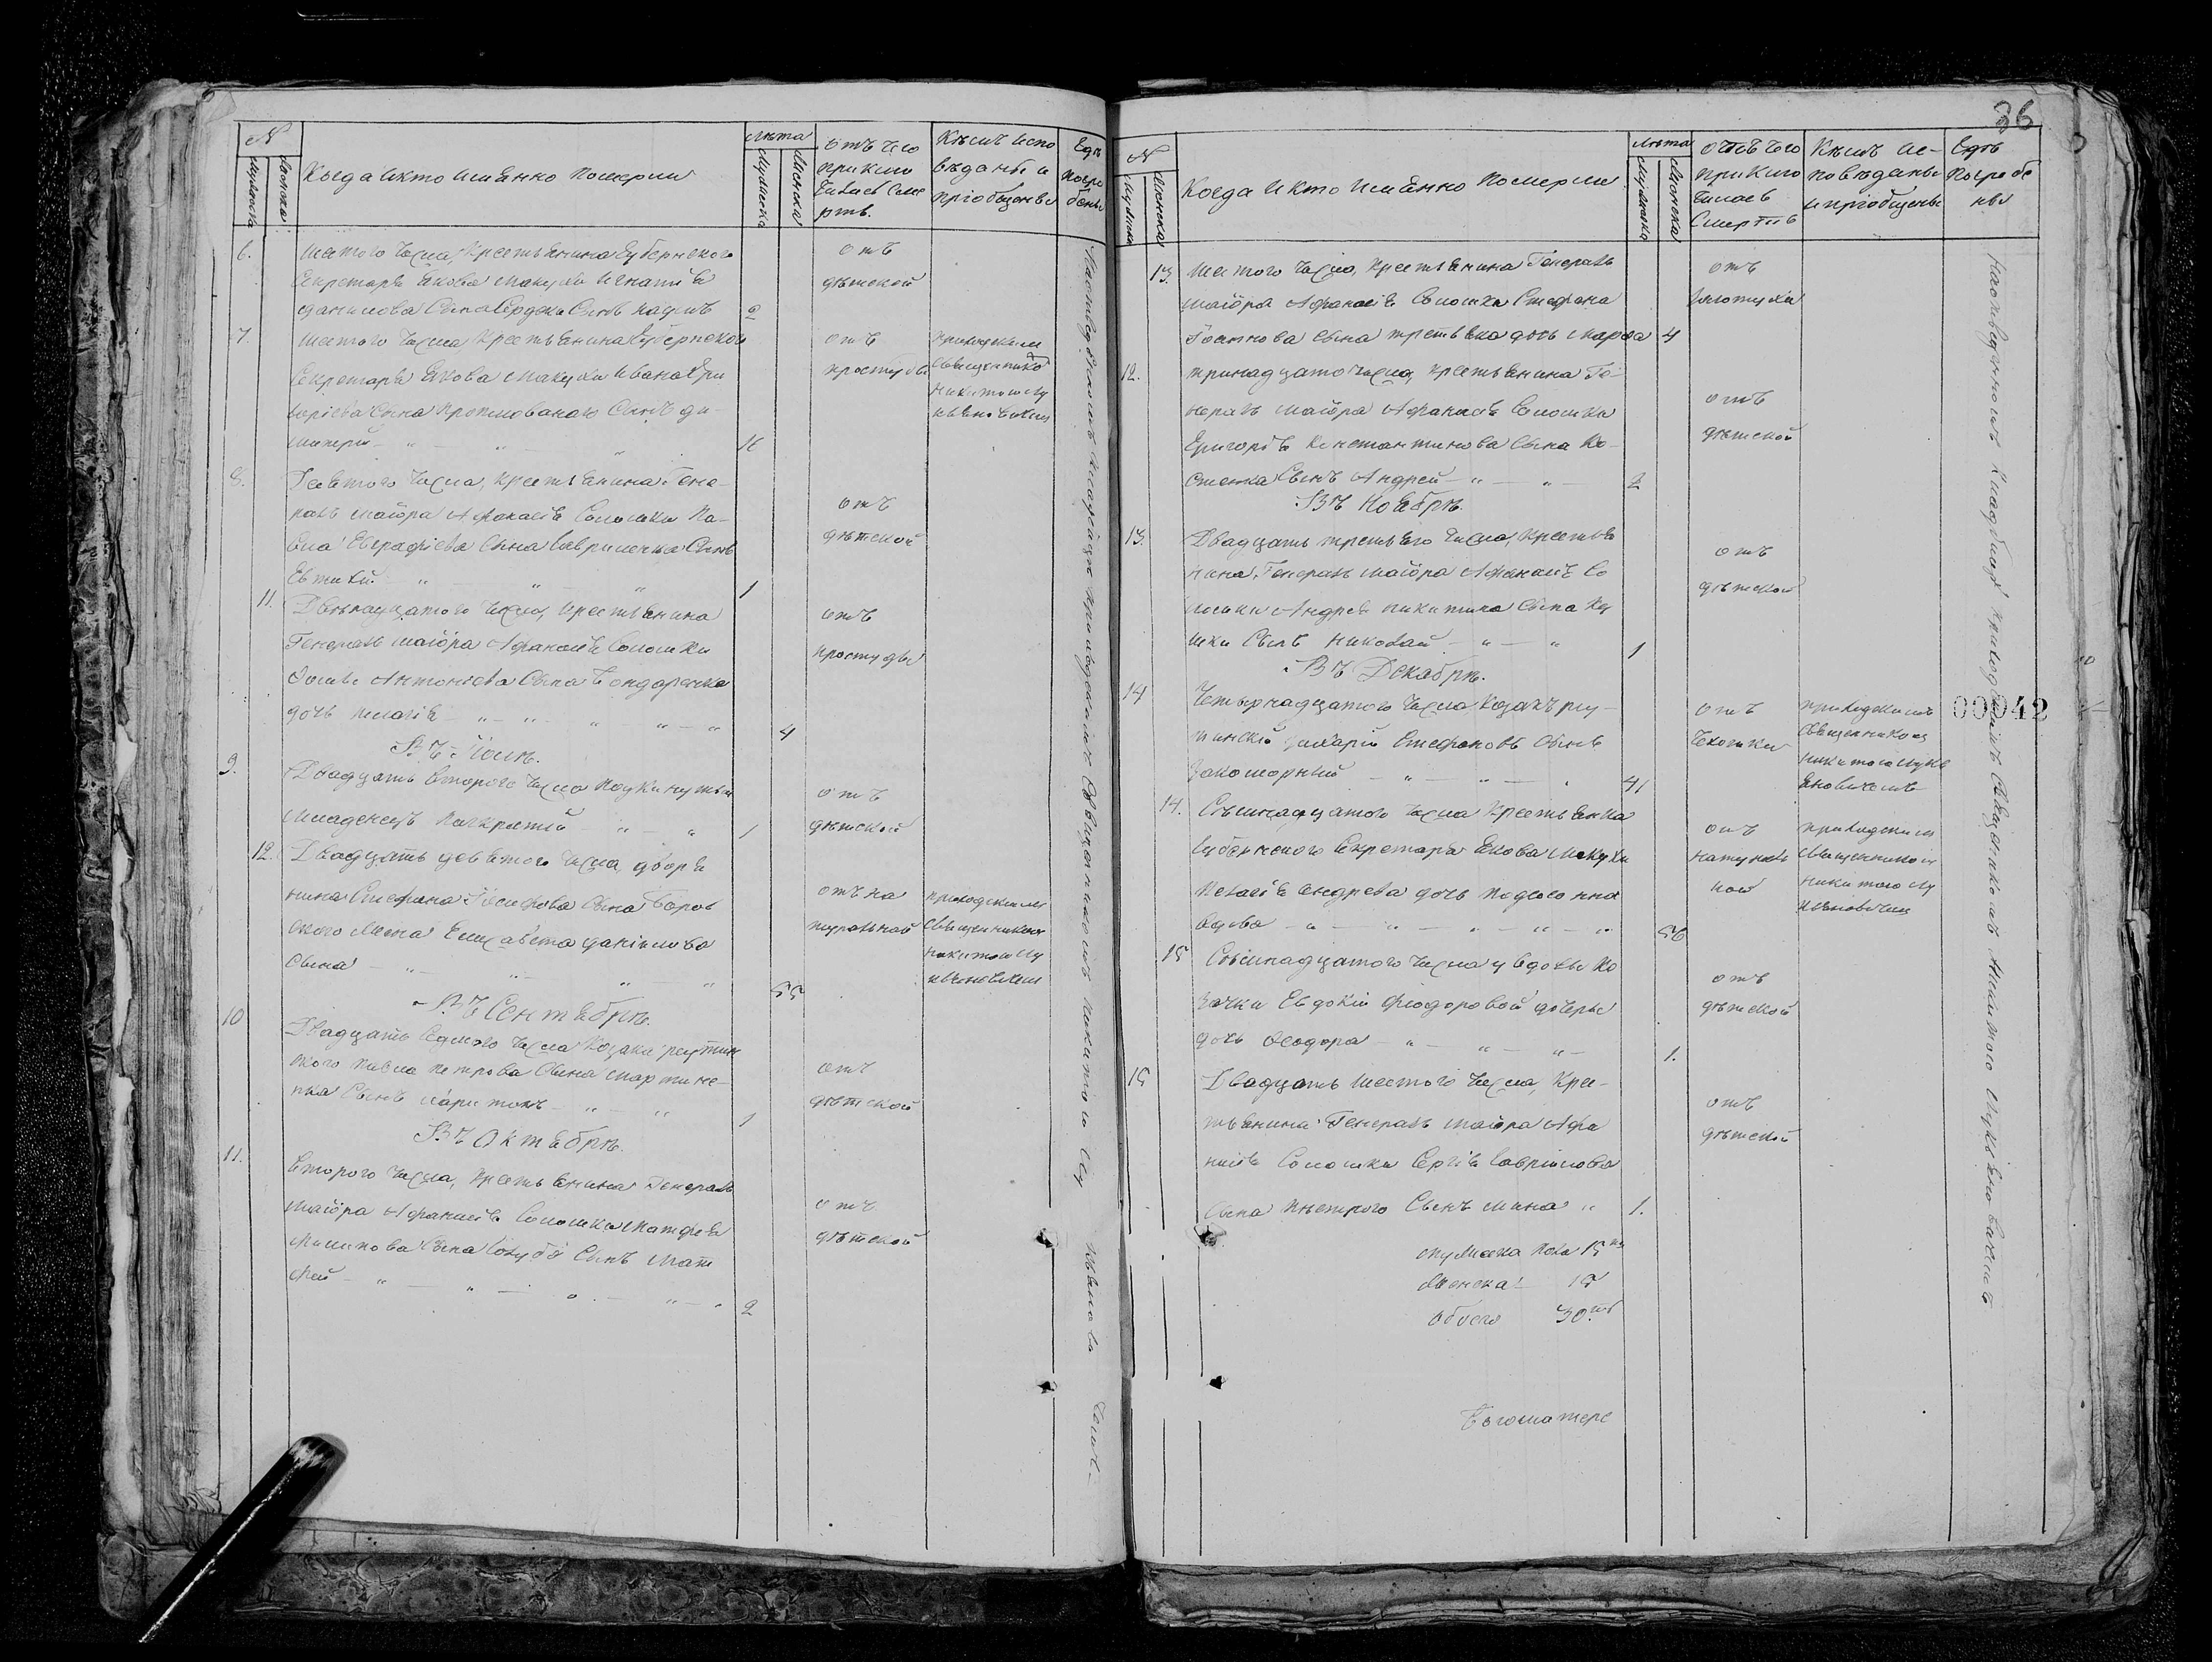 N
Мужеска
Женска
Когда и кто имянно Померли
лѣта
Мужеска
Женска
отъ чего
приклю
чилась сме
рть.
Кѣмъ испо
вѣданы и
пріобщены
Гдѣ
погре
бены
6.
шестого числа, крестьянина Губернского
Секретаря Якова Макухи Игнатія
данилова Сына Сердюка Сынъ
2
отъ
дѣтской
7.
шестого числа крестьянина Губернского
Секретаря Якова Макухи Ивана Гри
горіева сына Сынъ ди-
митрій
отъ
простуды
приходскимъ
священико
Никитою Лу
кьяновичем
8.
Девятого числа, крестьянина Гене-
ралъ маіора Афанасія Соломки Па-
вла Евграфіева Сына Гавриленка Сынъ
Евтихій.
1
отъ
дѣтской
11.
Двенадцатого числа, крестьянина
Генералъ маіора Афанасія Соломки
Антоніева Сына Бондаренка
дочь Пелагія
4
отъ
простуды
Въ Іюлѣ.
9.
Двадцать второго числа подкинутый
младенецъ Панкратій
1
отъ
дѣтской
12.
Двадцать девятого числа, дворя
нина Стефана Іосифова Сына Боров
ского Жена Елисавета даніилова
Сына
55
отъ на
туральной
приходскимъ
священикомъ
никитою Лу
кьяновичем
Въ Сентябрѣ.
10
Двадцать седмого числа козака реутин
ского Павла Петрова Сына мартине-
нка Сынъ харитонъ
1
отъ
дѣтской
Въ Октябрѣ.
11.
Второго числа, крестьянина Генералъ
маіора Афанасія Соломки Матфея
Сына Голуба Сынъ Мат
фей
2
отъ
дѣтской
На приходскимъ Священникомъ Никитою Лу кьянови чемъ
36
N
Мужеска
Женска
Когда и кто имянно Померли
лѣта
Мужеска
Женска
отъ чего
приклю
чилась
Смерть
Кѣмъ ис-
повѣданы
и пріобщены
Гдѣ
Погребе
ны
13.
шестого числа, крестьянина Генералъ
маіора Афанасія Соломки Стефана
Іоаннова сына третьяка дочь марфа
4
отъ
золотухи
12.
тринадцатого числа, крестьянина Ге-
нералъ маіора Афанасія Соломки
Григорія Константинова Сына Ко-
стенка Сынъ Андрей
2
отъ
дѣтской
Въ Ноябрѣ.
13.
Двадцать третьяго числа, крестья
нина, Генералъ маіора Афанасія Со
ломки Андрея никитина Сына Ку
шки Сынъ Николай
1
отъ
дѣтской
Въ Декабрѣ.
14
Четырнадцатого числа козакъ реу-
тинскій захарій Стефановъ Сынъ
Закоморный
41
отъ
чахотки
приходскимъ
священникомъ
никитою лукь
яновичемъ
00042
14.
Семнадцатого числа крестьянка
Губернского Секретаря Якова Макухи
Пелагія андреева дочь
вдова
56
отъ
натураль
ной
приходским
Священником
никитою Лу
кьяновичем
15
Семнадцатого числа у вдовы Ко
зачки Евдокіи Фіодоровой дочеры
дочь Феодора
1.
отъ
дѣтской
15
Двадцать шестого числа, крес-
тьянина Генералъ маіора Афа
насія Соломки Сергія Гавриілова
Сына Сынъ Мина
1.
отъ
дѣтской
Мужеска пола 15
Женска 15
обоего 30
Богоматере
На кладбищѣ приходскимъ Священникомъ Никитою Лукьяновичемъ